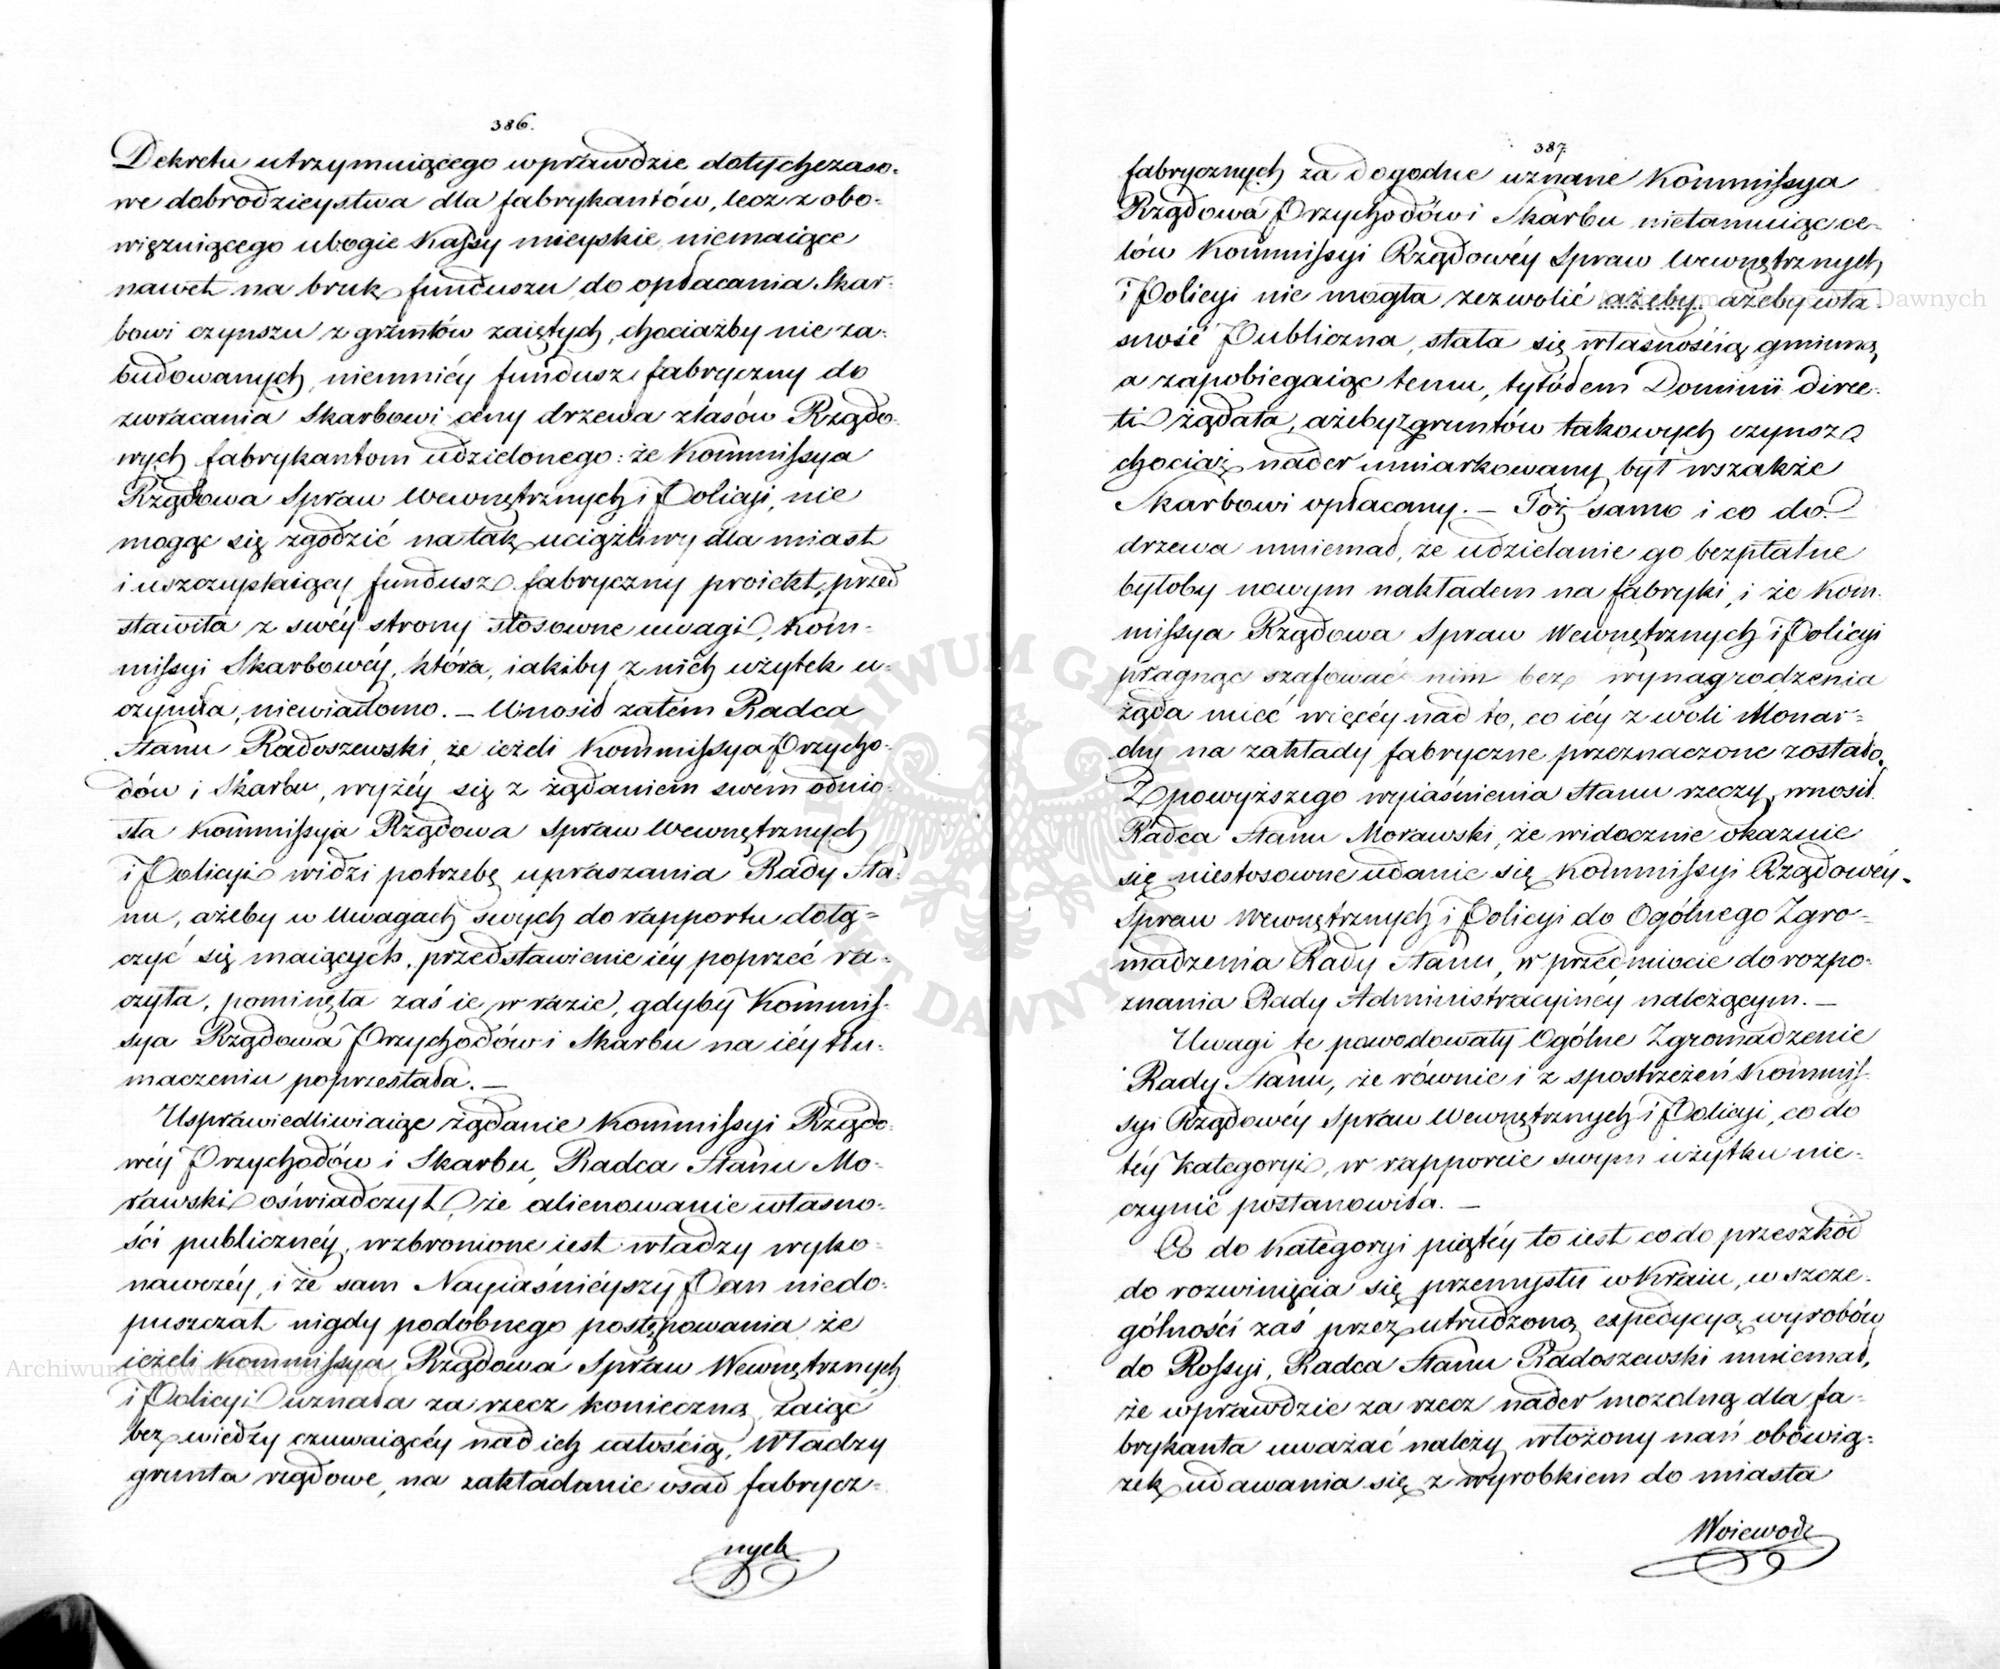 386.
Dekretu utrzymuiącego wprawdzie dotychczaso-
we dobrodzieystwa dla fabrykantów, lecz z obo-
więzuiącego ubogie Kassy mieyskie, niemaiące
nawet na bruk funduszu, do opłacania Skar-
bowi czynszu z gruntów zaiętych, chociażby nie za-
budowanych, niemniéy fundusz fabryczny do
zwracania Skarbowi ceny drzewa z lasów Rządo-
wych fabrykantom udzielonego: że Kommissya
Rządowa Spraw Wewnętrznych i Policyi, nie
mogąc się zgodzić na tak uciążliwy dla miast
i uszczuplaiący fundusz fabryczny proiekt, przed
stawiła z swéy strony stosowne uwagi, Kom-
missyi Skarbowéy, która, iakiby z nich użytek u-
czyniła, niewiadomo. — Wnosił zatém Radca
Stanu Radoszewski, że ieżeli Kommissya Przycho-
dów i Skarbu, wyżéy się z żądaniem swém odnio-
sła Kommissyia Rządowa Spraw Wewnętrznych
i Policyi widzi potrzebę upraszania Rady Sta-
nu, ażeby w Uwagach swych do rapportu dołą-
czyć się maiących, przedstawienie iéy poprzeć ra-
czyła, pominęła zaś ie, w razie, gdyby Kommis-
sya Rządowa Przychodów i Skarbu na iéy tłu-
maczeniu poprzestała. —
Usprawiedliwiaiąc żądanie Kommissyi Rządo-
wéy Przychodów i Skarbu, Radca Stanu Mo-
rawski oświadczył, że alienowanie własno-
ści publicznéy, wzbronione iest władzy wyko-
nawczéy, i że sam Nayiaśnieyszy Pan niedo-
puszczał nigdy podobnego postępowania, że
ieżeli Kommissya Rządowa Spraw Wewnętrznych
i Policyi uznała za rzecz konieczną, zaiąć
bez wiedzy czuwaiącéy nad ich całością, Władzy
grunta rządowe, na zakładanie osad fabrycz-
nych
387.
fabrycznych za dogodne uznane Kommissya
Rządowa Przychodów i Skarbu nietamuiąc ce-
lów Kommissyi Rządowéy Spraw Wewnętrznych
i Policyi nie mogła zezwolić ażeby ażeby wła-
sność Publiczna, stała się własnością gminną,
a zapobiegaiąc temu, tytółem Dominii direc-
ti żądała, ażeby z gruntów takowych czynsz
chociaż nader umiarkowany, był wszakże
Skarbowi opłacany. — Toż samo i co do
drzewa mniemał, że udzielanie go bezpłatne
byłoby nowym nakładem na fabryki, i że Kom-
missya Rządowa Spraw Wewnętrznych i Policyi
pragnąc szafować nim bez wynagrodzenia
żąda mieć więcéy nad to, co iéy z woli Monar-
chy na zakłady fabryczne przeznaczone zostało.
Z powyższego wyiaśnienia stanu rzeczy, wnosił
Radca Stanu Morawski, że widocznie okazuie
się niestosowne udanie się Kommissyi Rządowéy
Spraw Wewnętrznych i Policyi do Ogólnego Zgro-
madzenia Rady Stanu, w przedmiocie do rozpo-
znania Rady Administracyinéy należącym. —
Uwagi te powodowały Ogólne Zgromadzenie
Rady Stanu, że równie i z spostrzeżeń Kommis-
syi Rządowéy Spraw Wewnętrznych i Policyi, co do
téy Kategoryi, w rapporcie swym użytku nie-
czynić postanowiła. —
Co do Kategoryi piątéy to iest co do przeszkód
do rozwinięcia się przemysłu w Kraiu, w szcze-
gólności zaś przez utrudzoną expedycyą wyrobów
do Rossyi, Radca Stanu Radoszewski mniemał,
że wprawdzie za rzecz nader mozolną dla fa-
brykanta uważać należy włożony nań obowią-
zek udawania się z wyrobkiem do miasta
Woiewodz